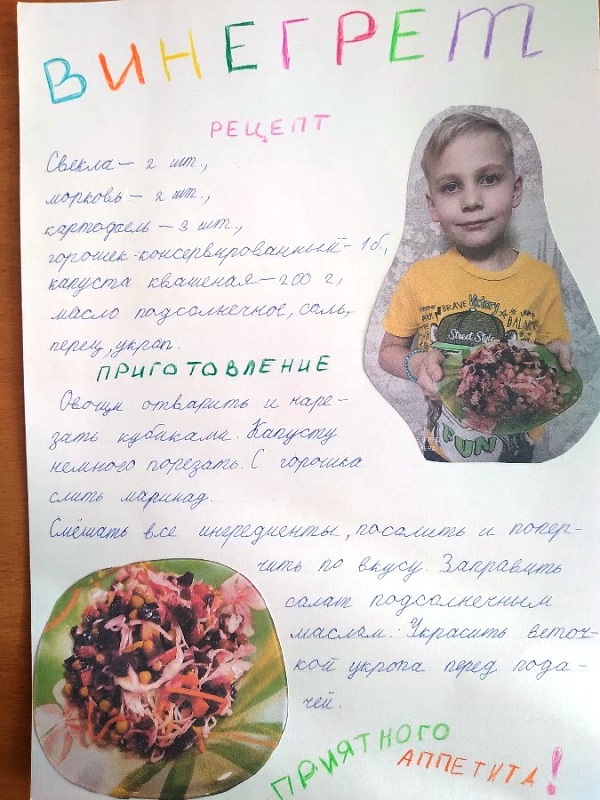 ВИНЕГРЕТ
РЕЦЕПТ
Свекла – 2 шт.,
морковь – 2 шт.,
картофель – 3 шт.,
горошек консервированный – 1 б.,
капуста квашеная – 200 г,
масло подсолнечное, соль,
перец, укроп.
BRAVE Victory
Street Style
FUN
ПРИГОТОВЛЕНИЕ
Овощи отварить и наре-
зать кубиками. Капусту
немного порезать. С горошка
слить маринад.
Смешать все ингредиенты, посолить и попер-
чить по вкусу. Заправить
салат подсолнечным
маслом. Украсить веточ-
кой укропа перед пода-
чей.
ПРИЯТНОГО
АППЕТИТА!